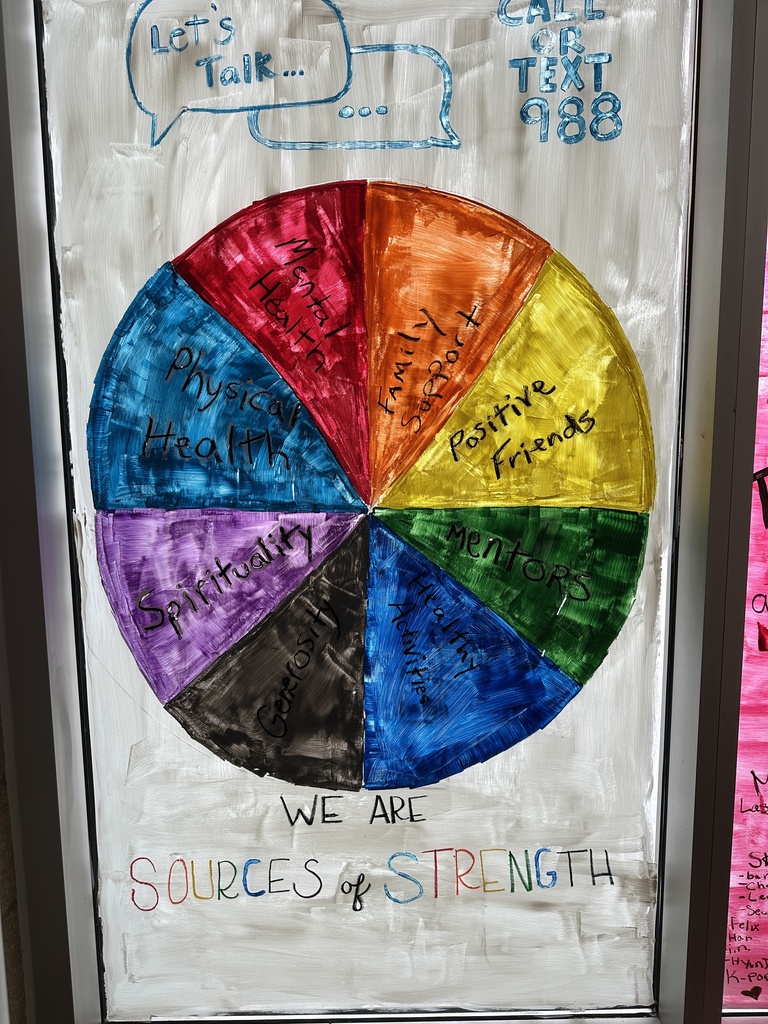 Let's
Talk...
CALL
OR
TEXT
988
Mental
Health
Family
Support
Positive
Friends
Mentors
Healthy
Activities
Generosity
Spirituality
Physical
Health
WE ARE
SOURCES of STRENGTH
Felix
Han
K-pop